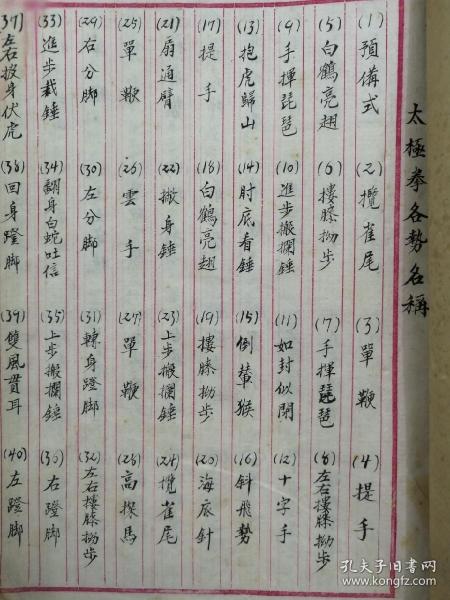 太極拳各勢名稱
(1)預備式 (2)攬雀尾 (3)單鞭 (4)提手
(5)白鶴亮翅 (6)摟膝拗步 (7)手揮琵琶 (8)左右摟膝拗步
(9)手揮琵琶 (10)進步搬攔錘 (11)如封似閉 (12)十字手
(13)抱虎歸山 (14)肘底看錘 (15)倒輦猴 (16)斜飛勢
(17)提手 (18)白鶴亮翅 (19)摟膝拗步 (20)海底針
(21)扇通臂 (22)撇身錘 (23)上步搬攔錘 (24)攬雀尾
(25)單鞭 (26)雲手 (27)單鞭 (28)高探馬
(29)右分脚 (30)左分脚 (31)轉身蹬脚 (32)左右摟膝拗步
(33)進步栽錘 (34)翻身白蛇吐信 (35)上步搬攔錘 (36)右蹬脚
(37)左右披身伏虎 (38)回身蹬脚 (39)雙風貫耳 (40)左蹬脚
孔夫子旧书网
www.kongfz.com